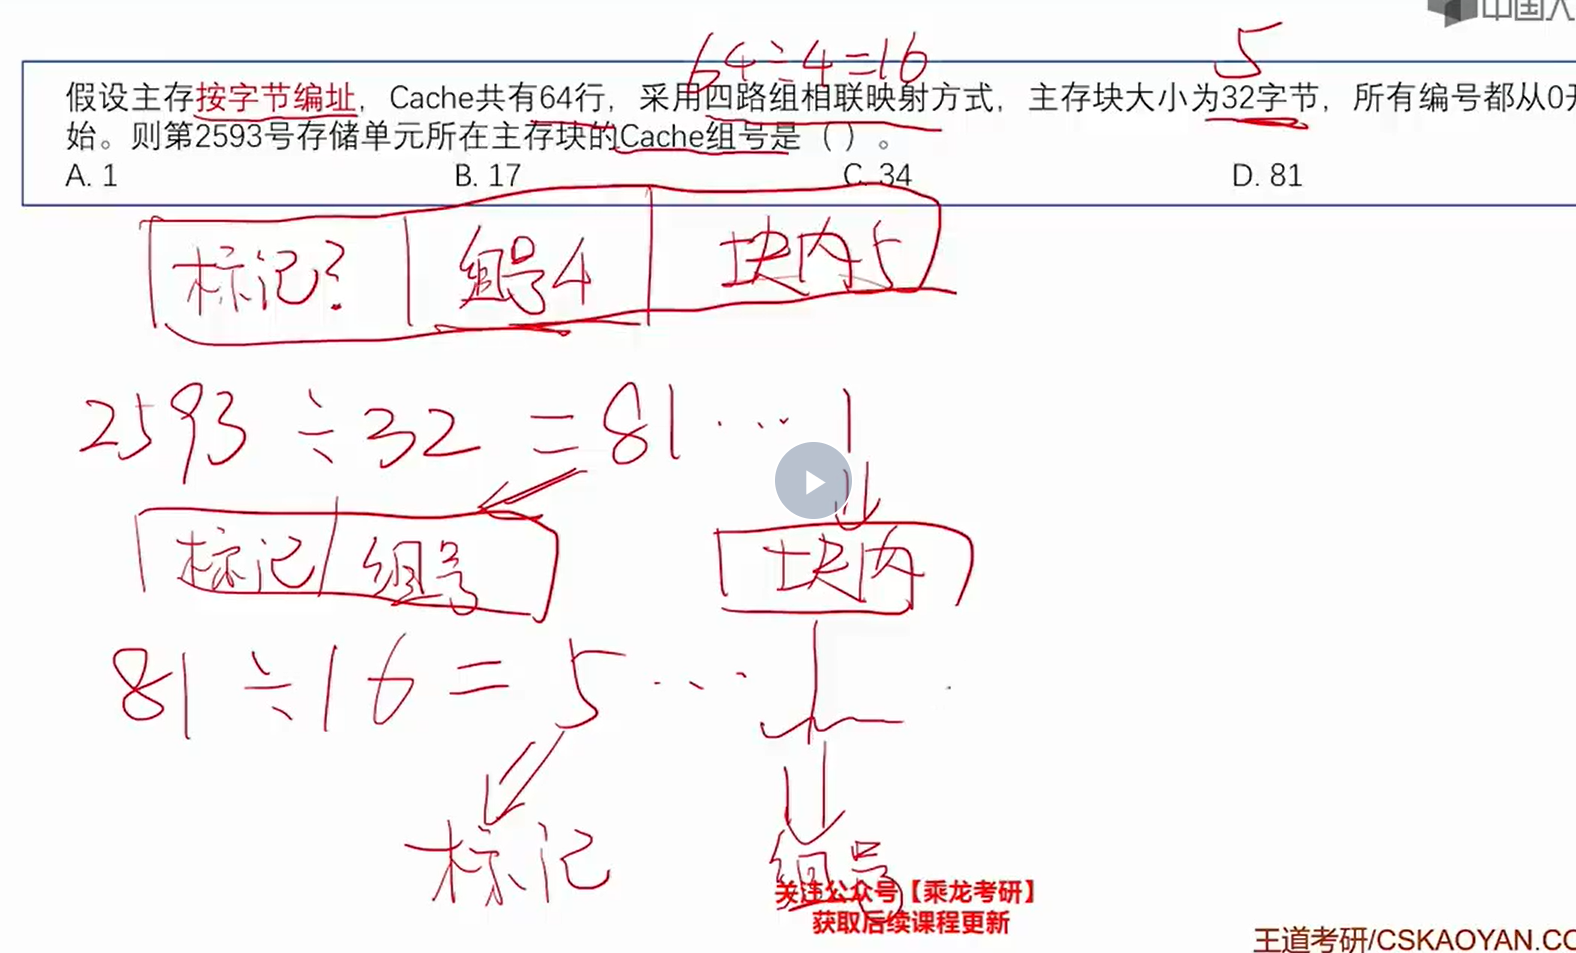 中国人
64÷4=16
5
假设主存按字节编址，Cache共有64行，采用四路组相联映射方式，主存块大小为32字节，所有编号都从0开
始。则第2593号存储单元所在主存块的Cache组号是（ ）。
A. 1 B. 17 C. 34 D. 81
标记? 组号4 块内5
2593÷32=81…1
标记 组号 块内
81÷16=5…1
标记 组号
关注公众号【乘龙考研】
获取后续课程更新
王道考研/CSKAOYAN.CO